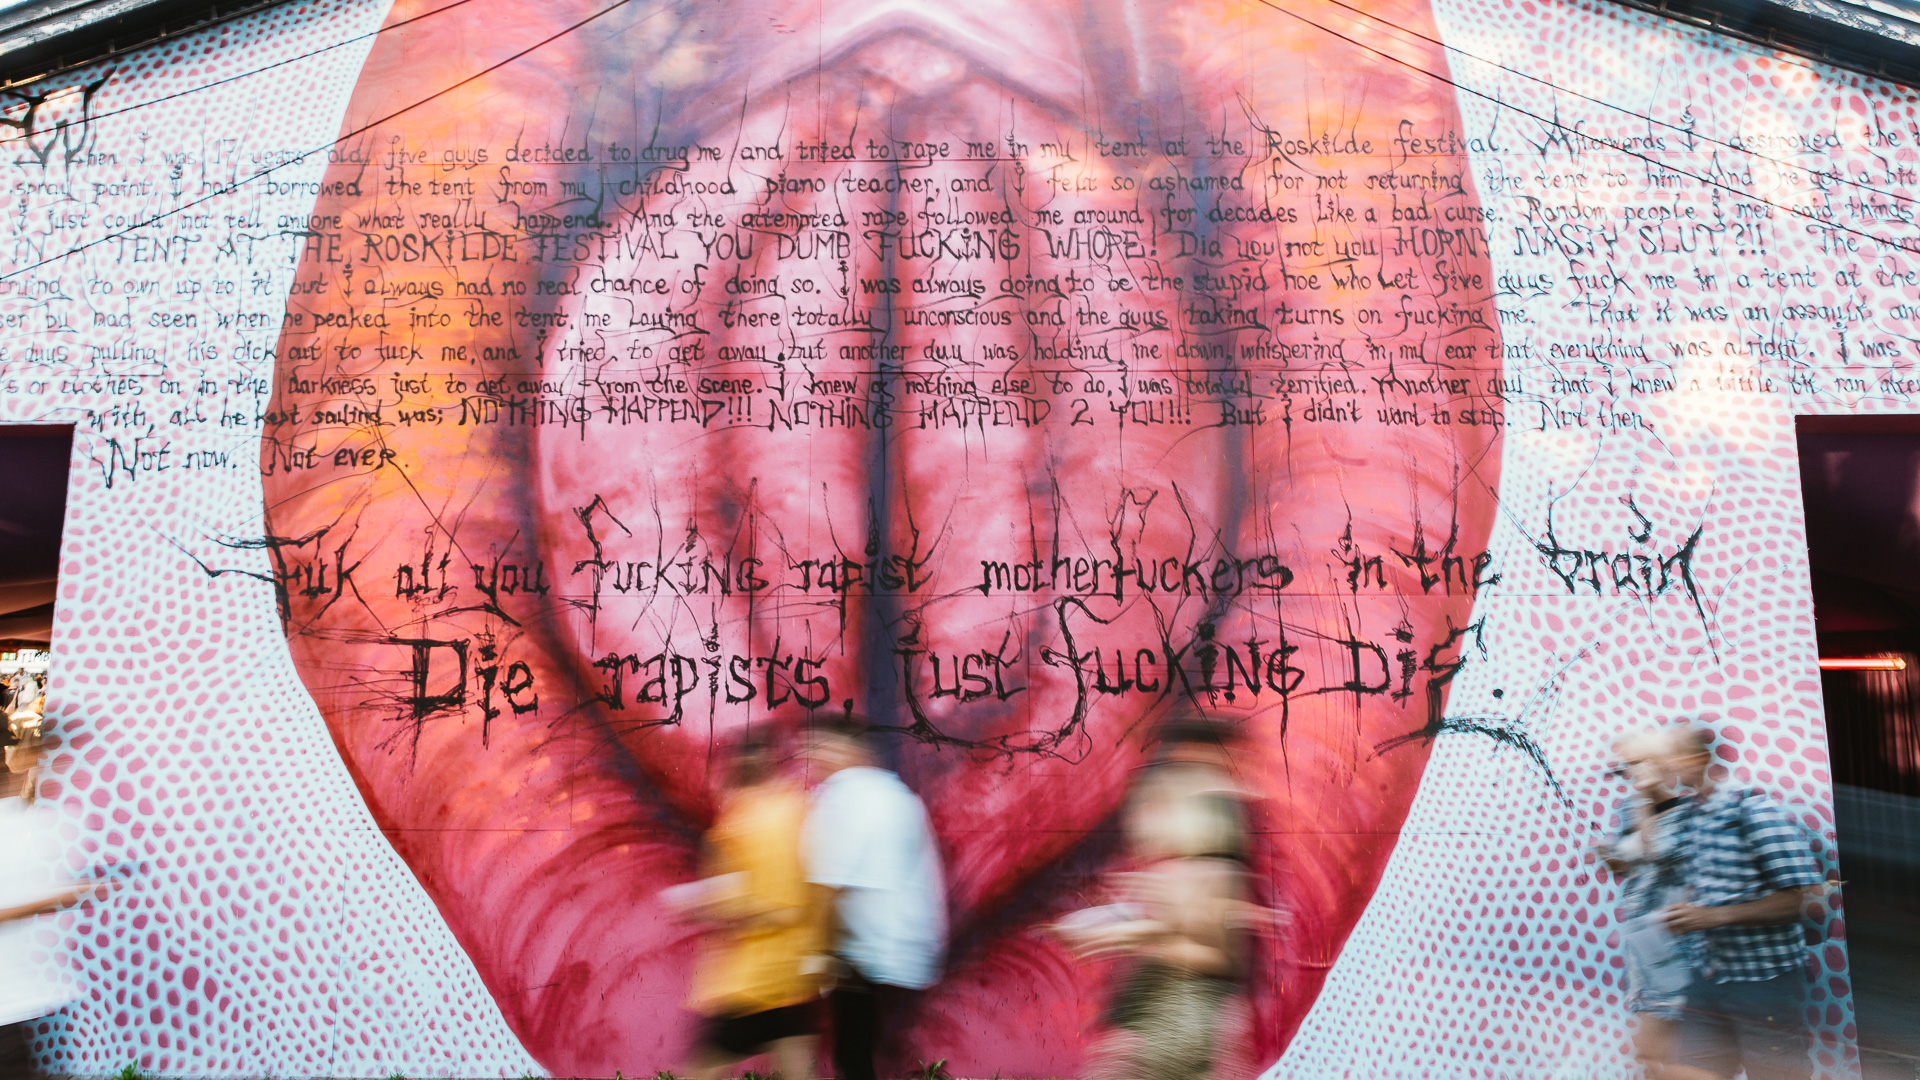 when I was 17 years old, five guys decided to drug me and tried to rape me in my tent at the Roskilde festival. Afterwards I desstroyed the
spray paint. I had borrowed the tent from my childhood piano teacher, and I felt so ashamed for not returning the tent to him. And he got a bit
I just could not tell anyone what really happend. And the attempted rape followed me around for decades like a bad curse. Random people I met said things
IN A TENT AT THE ROSKILDE FESTIVAL YOU DUMB FUCKING WHORE! Did you not you HORNY NASTY SLUT?!!! The
to own up to it but I always had no real chance of doing so. I was always doing to be the stupid hoe who let five guys fuck me in a tent at the
by had seen when he peaked into the tent, me laying there totally unconscious and the guys taking turns on fucking me. That it was an assault and
guys pulling his dick out to fuck me, and I tried to get away but another guy was holding me down, whispering in my ear that everything was alright. I was
or clothes on in the darkness just to get away from the scene. I knew of nothing else to do, I was totally terrified. Another guy that I knew a little bit ran after
with, all he kept saying was; NOTHING HAPPEND!!! NOTHING HAPPEND 2 YOU!!! But I didn't want to stop. Not then.
Not now. Not ever.
Fuk all you fucking rapist motherfuckers in the brain
Die rapists, just fucking DiE.